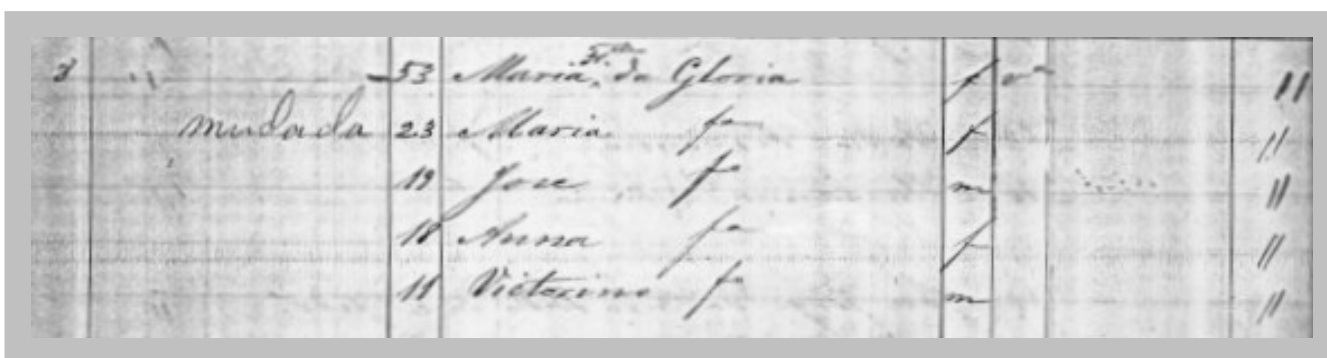 3 " 53 Maria da Gloria f vª "
mudada 23 Maria fª f "
19 Jose fº m "
18 Anna fª f "
11 Victorino fº m "